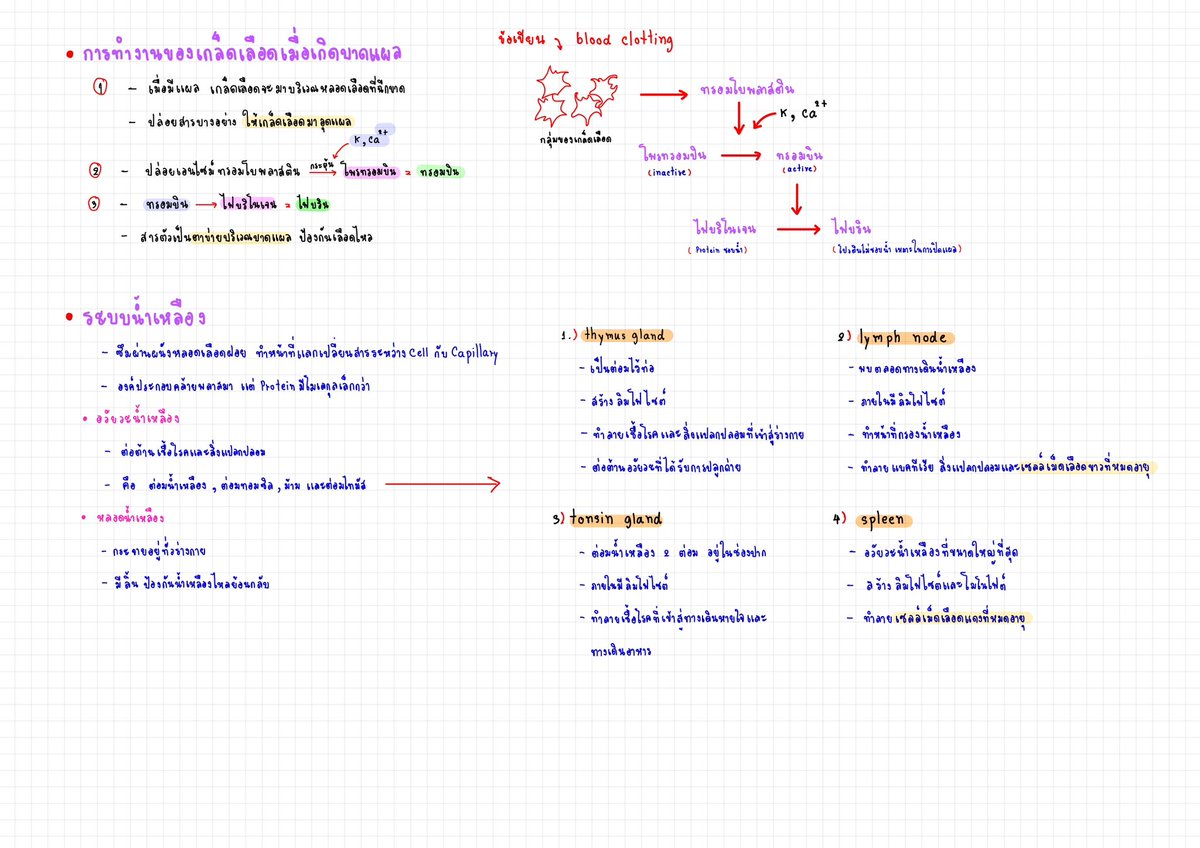 • การทำงานของเกล็ดเลือดเมื่อเกิดบาดแผล
① - เมื่อมีแผล เกล็ดเลือดจะมาบริเวณหลอดเลือดที่ฉีกขาด
- ปล่อยสารบางอย่าง ให้เกล็ดเลือดมาอุดแผล
K, Ca²⁺
② - ปล่อยเอนไซม์ ทรอมโบพลาสติน กระตุ้น → โพรทรอมบิน = ทรอมบิน
③ - ทรอมบิน → ไฟบริโนเจน = ไฟบริน
- สารตัวเป็นตาข่ายบริเวณบาดแผล ป้องกันเลือดไหล
ข้อเขียน blood clotting
กลุ่มของเกล็ดเลือด
ทรอมโบพลาสติน
K, Ca²⁺
โพรทรอมบิน → ทรอมบิน
(inactive) (active)
ไฟบริโนเจน → ไฟบริน
(Protein ชอบน้ำ) (โปรตีนไม่ชอบน้ำ เหมาะในการปิดแผล)
• ระบบน้ำเหลือง
- ซึมผ่านผนังหลอดเลือดฝอย ทำหน้าที่แลกเปลี่ยนสารระหว่าง Cell กับ Capillary
- องค์ประกอบคล้ายพลาสมา แต่ Protein มีโมเลกุลเล็กกว่า
• อวัยวะน้ำเหลือง
- ต่อต้านเชื้อโรคและสิ่งแปลกปลอม
- คือ ต่อมน้ำเหลือง , ต่อมทอนซิล , ม้าม และต่อมไทมัส
• หลอดน้ำเหลือง
- กระจายอยู่ทั่วร่างกาย
- มีลิ้น ป้องกันน้ำเหลืองไหลย้อนกลับ
1.) thymus gland
- เป็นต่อมไร้ท่อ
- สร้าง ลิมโฟไซต์
- ทำลายเชื้อโรคและสิ่งแปลกปลอมที่เข้าสู่ร่างกาย
- ต่อต้านอวัยวะที่ได้รับการปลูกถ่าย
2) lymph node
- พบตลอดทางเดินน้ำเหลือง
- ภายในมีลิมโฟไซต์
- ทำหน้าที่กรองน้ำเหลือง
- ทำลาย แบคทีเรีย สิ่งแปลกปลอมและเซลล์เม็ดเลือดขาวที่หมดอายุ
3) tonsin gland
- ต่อมน้ำเหลือง 2 ต่อม อยู่ในช่องปาก
- ภายในมีลิมโฟไซต์
- ทำลายเชื้อโรคที่เข้าสู่ทางเดินหายใจและ
ทางเดินอาหาร
4) spleen
- อวัยวะน้ำเหลืองที่ขนาดใหญ่ที่สุด
- สร้าง ลิมโฟไซต์และโมโนไซต์
- ทำลาย เซลล์เม็ดเลือดแดงที่หมดอายุ